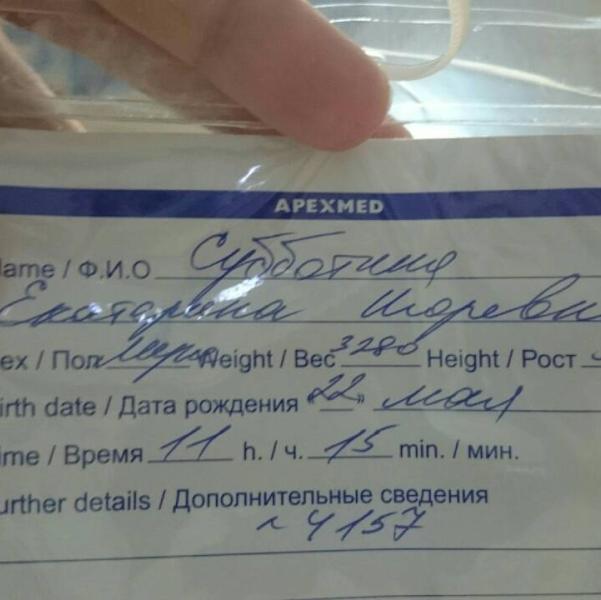 APEXMED
ame / Ф.И.О Субботина
Екатерина Игоревн
ex / Пол Weight / Вес 3280 Height / Рост
irth date / Дата рождения "22" мая
ime / Время 11 h. / ч. 15 min. / мин.
urther details / Дополнительные сведения
4157